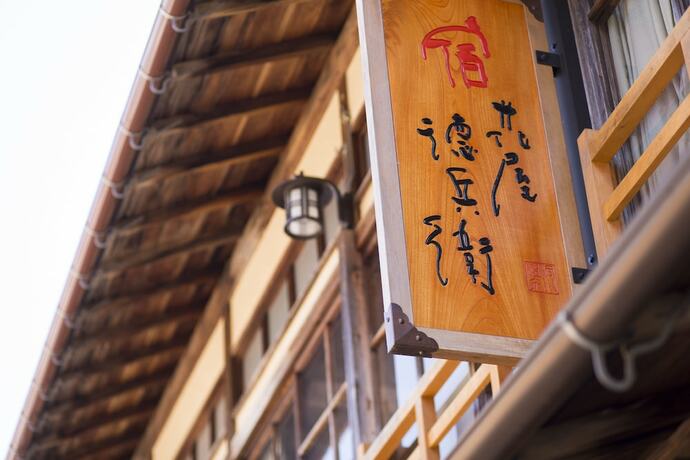 宿
花屋
徳兵衛